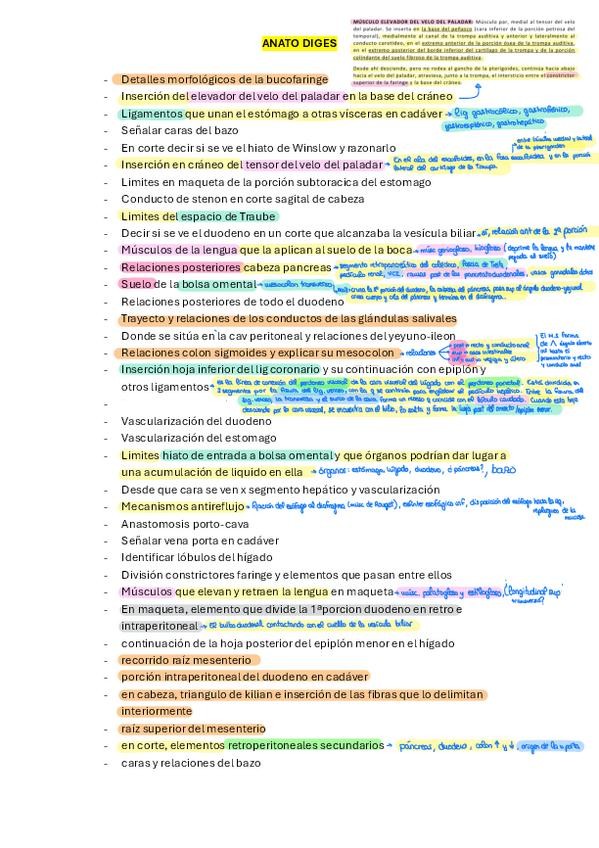 MÚSCULO ELEVADOR DEL VELO DEL PALADAR: Músculo par, medial al tensor del velo
del paladar. Se inserta en la base del peñasco (cara inferior de la porción petrosa del
temporal), medialmente al canal de la trompa auditiva y anterior y lateralmente al
conducto carotídeo, en el extremo anterior de la porción ósea de la trompa auditiva,
en el extremo posterior del borde inferior del cartílago de la trompa y de la porción
colindante del suelo fibroso de la trompa auditiva.
Desde ahí desciende, pero no rodea al gancho de la pterigoides, continúa hacia abajo
hacia el velo del paladar, atraviesa, junto a la trompa, el intersticio entre el constrictor
superior de la faringe y la base del cráneo.
ANATO DIGES
- Detalles morfológicos de la bucofaringe
- Inserción del elevador del velo del paladar en la base del cráneo
- Ligamentos que unan el estómago a otras vísceras en cadáver → lig gastrocólico, gastrofrénico,
gastroesplénico, gastrohepático
- Señalar caras del bazo
- En corte decir si se ve el hiato de Winslow y razonarlo
- Inserción en cráneo del tensor del velo del paladar → En el ala del esfenoides, en la fosa escafoidea y en la porción
lateral del cartílago de la trompa.
entre láminas medial y lateral
de la pterigoides
- Limites en maqueta de la porción subtoracica del estomago
- Conducto de stenon en corte sagital de cabeza
- Limites del espacio de Traube
- Decir si se ve el duodeno en un corte que alcanzaba la vesícula biliar → sí, relación ant de la 2ª porción
- Músculos de la lengua que la aplican al suelo de la boca → músc geniogloso, hiogloso (deprime la lengua y la mantiene
pegada al suelo)
- Relaciones posteriores cabeza pancreas → segmento retropancreático del colédoco, fascia de Treitz,
pedículo renal, VCI, ramas post de las pancreatoduodenales, vasos gonadales dchos
- Suelo de la bolsa omental → mesocolon transverso
- Relaciones posteriores de todo el duodeno
- Trayecto y relaciones de los conductos de las glándulas salivales
- Donde se sitúa en la cav peritoneal y relaciones del yeyuno-ileon
- Relaciones colon sigmoides y explicar su mesocolon → relaciones
post → recto y conducto anal
sup → asas intestinales
inf → vejiga y útero
- Inserción hoja inferior del lig coronario y su continuación con epiplón y
otros ligamentos
-
- Vascularización del duodeno
- Vascularización del estomago
- Limites hiato de entrada a bolsa omental y que órganos podrían dar lugar a
una acumulación de liquido en ella → órganos: estómago, hígado, duodeno, ¿páncreas?, bazo
- Desde que cara se ven x segmento hepático y vascularización
- Mecanismos antireflujo → fijación del esófago al diafragma (músc de Rouget), esfínter esofágico inf, disposición del esófago hasta
repliegues de la mucosa
- Anastomosis porto-cava
- Señalar vena porta en cadáver
- Identificar lóbulos del hígado
- División constrictores faringe y elementos que pasan entre ellos
- Músculos que elevan y retraen la lengua en maqueta → músc. palatogloso y estilogloso, ¿longitudinal sup
- En maqueta, elemento que divide la 1ªporcion duodeno en retro e
intraperitoneal → El bulbo duodenal contactando con el cuello de la vesícula biliar
- continuación de la hoja posterior del epiplón menor en el hígado
- recorrido raíz mesenterio
- porción intraperitoneal del duodeno en cadáver
- en cabeza, triangulo de kilian e inserción de las fibras que lo delimitan
interiormente
- raiz superior del mesenterio
- en corte, elementos retroperitoneales secundarios → páncreas, duodeno, colon ↑ y ↓, origen de la v porta
- caras y relaciones del bazo